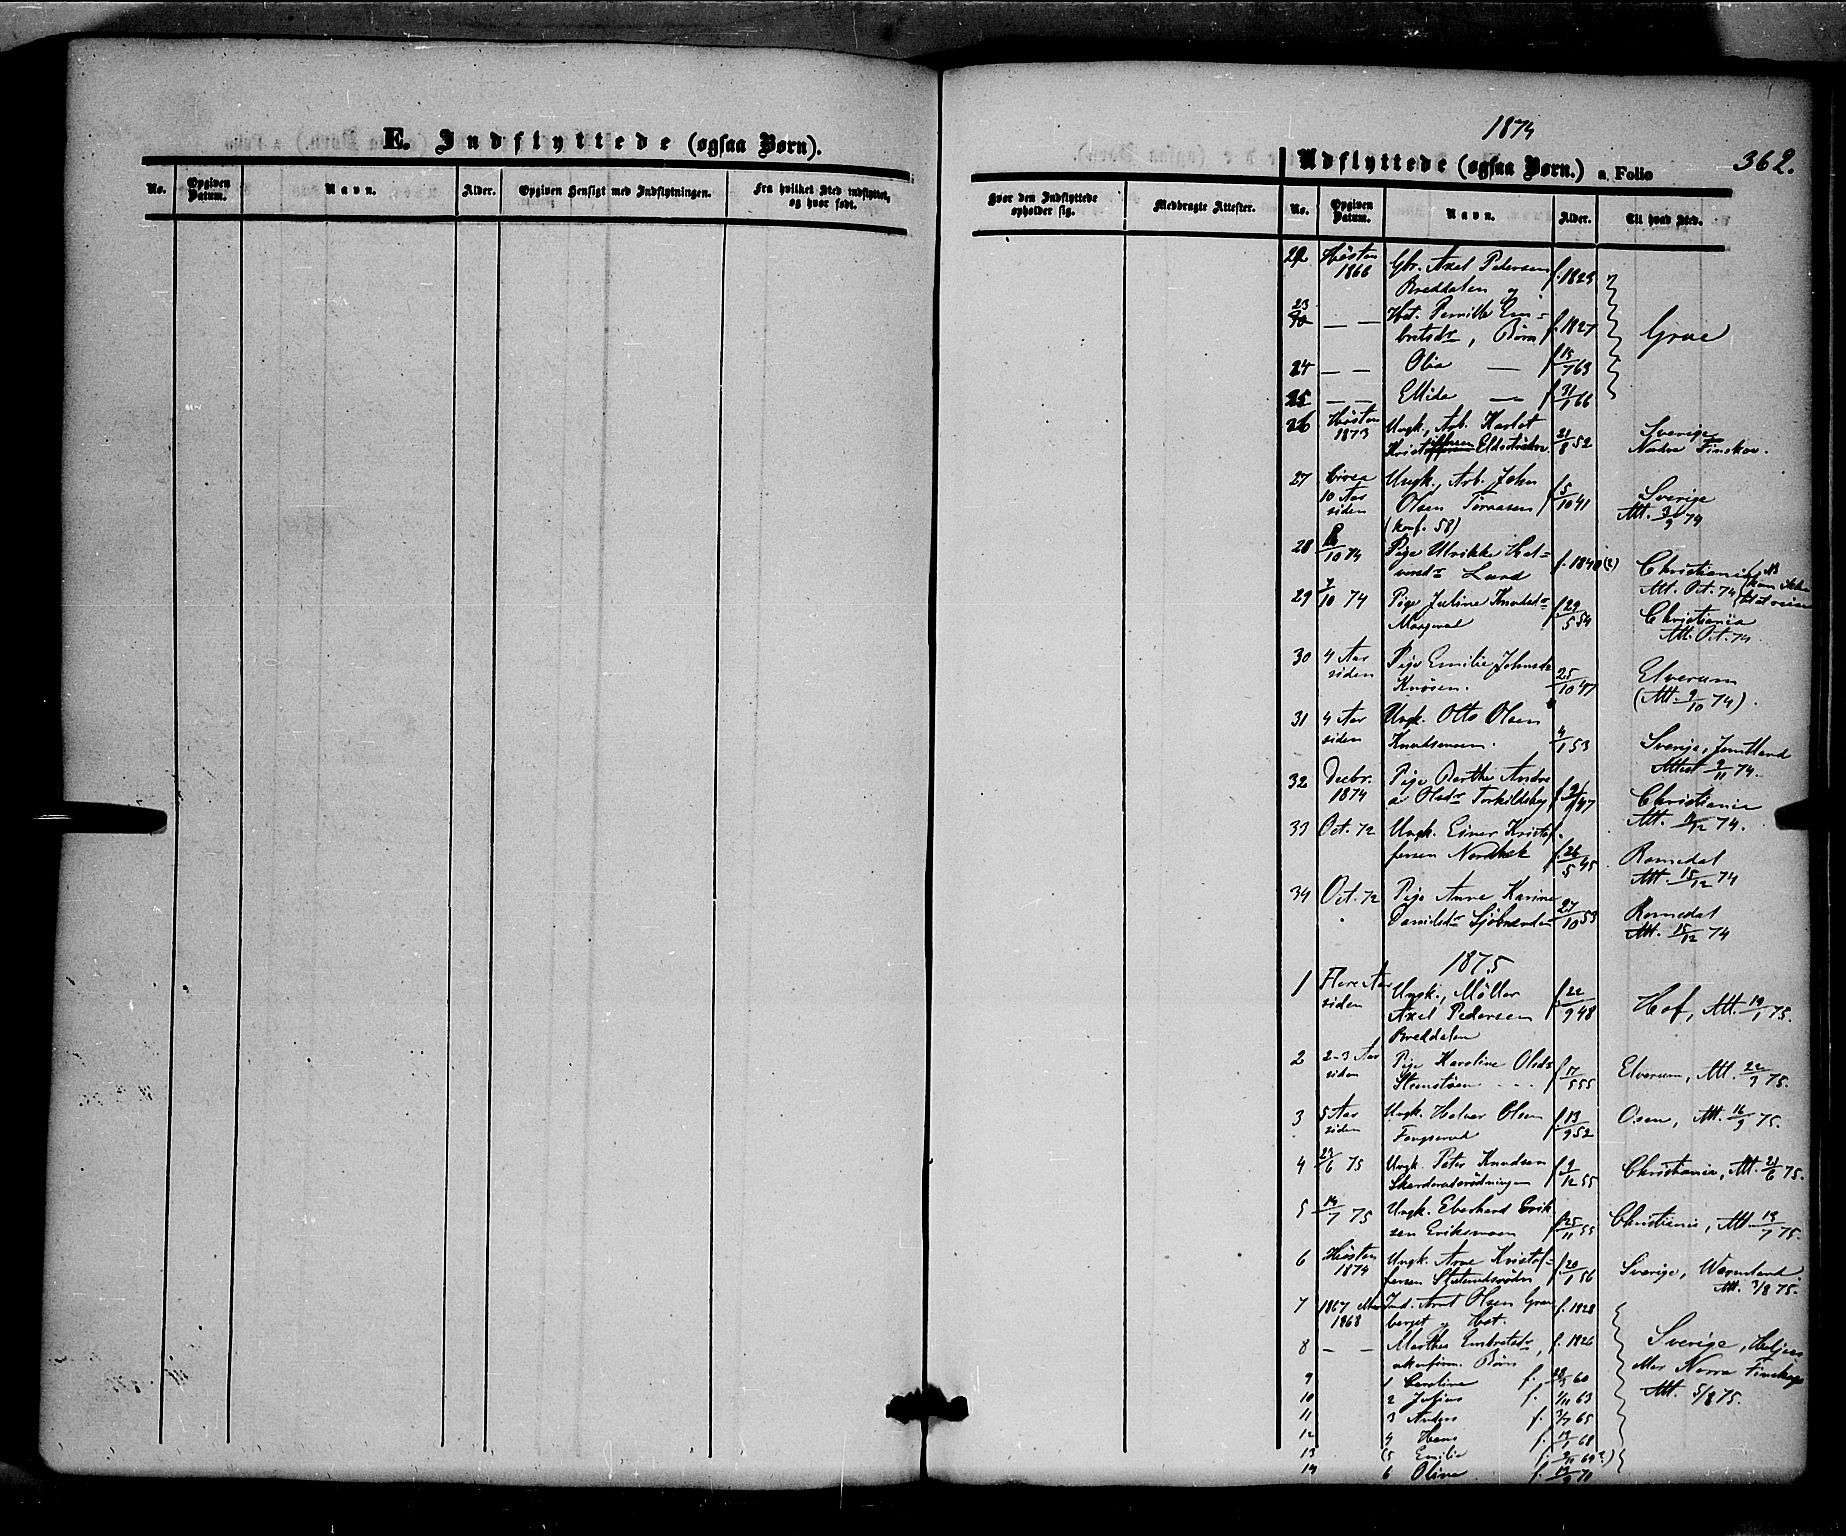 E. Indflyttede (ogsaa Børn).
No. Opgiven Datum. Navn. Alder. Opgiven Hensigt med Indflytningen. Fra hvilket Sted indflyttet, og hvor født.
1874
362.
Udflyttede (ogsaa Børn.) a. Folio
Hvor den Indflyttede opholder sig. Medbragte Attester. No. Opgiven Datum. Navn. Alder. Til hvad Sted.
22 Høsten Gbr. Axel Pedersen f. 1823
1866 Breddalen og
23 — — Hst. Pernille Em=
britsdr, Børn f. 1827 Grue
24 — — Olia — f 15/7 63
25 — — Ellida — f 31/1 66
26 Høsten Ungk., Arb. Karlot
1873 Kristoffersen 21/8 52 Sverige
Nordre Finskov.
27 Circa Ungk., Arb. John
10 Aar Olsen f 5/10 41 Sverige
siden (konf. 58) Att. 74
28 /10 74 Pige Ulrikke Hal=
vorsdr Lund f. 1840 (?) Christiania
Att. Oct. 74
29 7/10 74 Pige Juline Knudsdr f 29/5 54 Christiania
Att. Oct. 74
30 4 Aar Pige Emilie Johnsdr
siden Knøsen. 25/10 47 Elverum
(Att. 9/10 74).
31 4 Aar Ungk. Otto Olsen
siden Knudsmoen. 4/1 53 Sverige, Jemtland
Attest 9/11 74.
32 Decbr. Pige Berthe Andre
1874 a Olsdr Torkildsby Christiania
Att. /12 74.
33 Oct. 72 Ungk. Einer Kristof=
fersen f 26/5 45 Romedal
Att. 15/12 74
34 Oct. 72 Pige Anne Karine
Danielsdr 27/10 53 Romedal
Att. 15/12 74
1875
1 Flere Aar Ungk., Møller f 22/9 48 Hof, Att. 19/1 75.
siden Axel Pedersen
Breddalen
2 2-3 Aar Pige Karoline Olsdr
siden f 17/5 55 Elverum, Att. 22/3 75.
3 5 Aar Ungk. Halvor Olsen f 13/9 52 Osen, Att. 16/9 75.
siden
4 23/6 75 Ungk. Peter Knudsen f 9/12 55 Christiania, Att. 21/6 75.
5 14/7 75 Ungk. Eberhard Erik
sen Eriksmoen f 25/11 55 Christiania, Att. 13/7 75.
6 Høsten Ungk. Arne Kristof=
1874 fersen f 20/1 56 Sverige, Wermland
Att. 3/8 75.
7 1867 eller Ind. Arnt Olsen Græs f. 1828
1868 berget og Hst.
8 — — Marthe Embretsdr, f. 1826 Sverige,
Børn eller Norra Finskoga
9 1 Caroline f. 60 Att. 5/8 75.
10 2 Julius f. 7/11 63
11 3 Anders f. 3/7 65
12 4 Hans f. 68
13 (5 Emilie 9/11 69?)
14 6 Oline f. 70